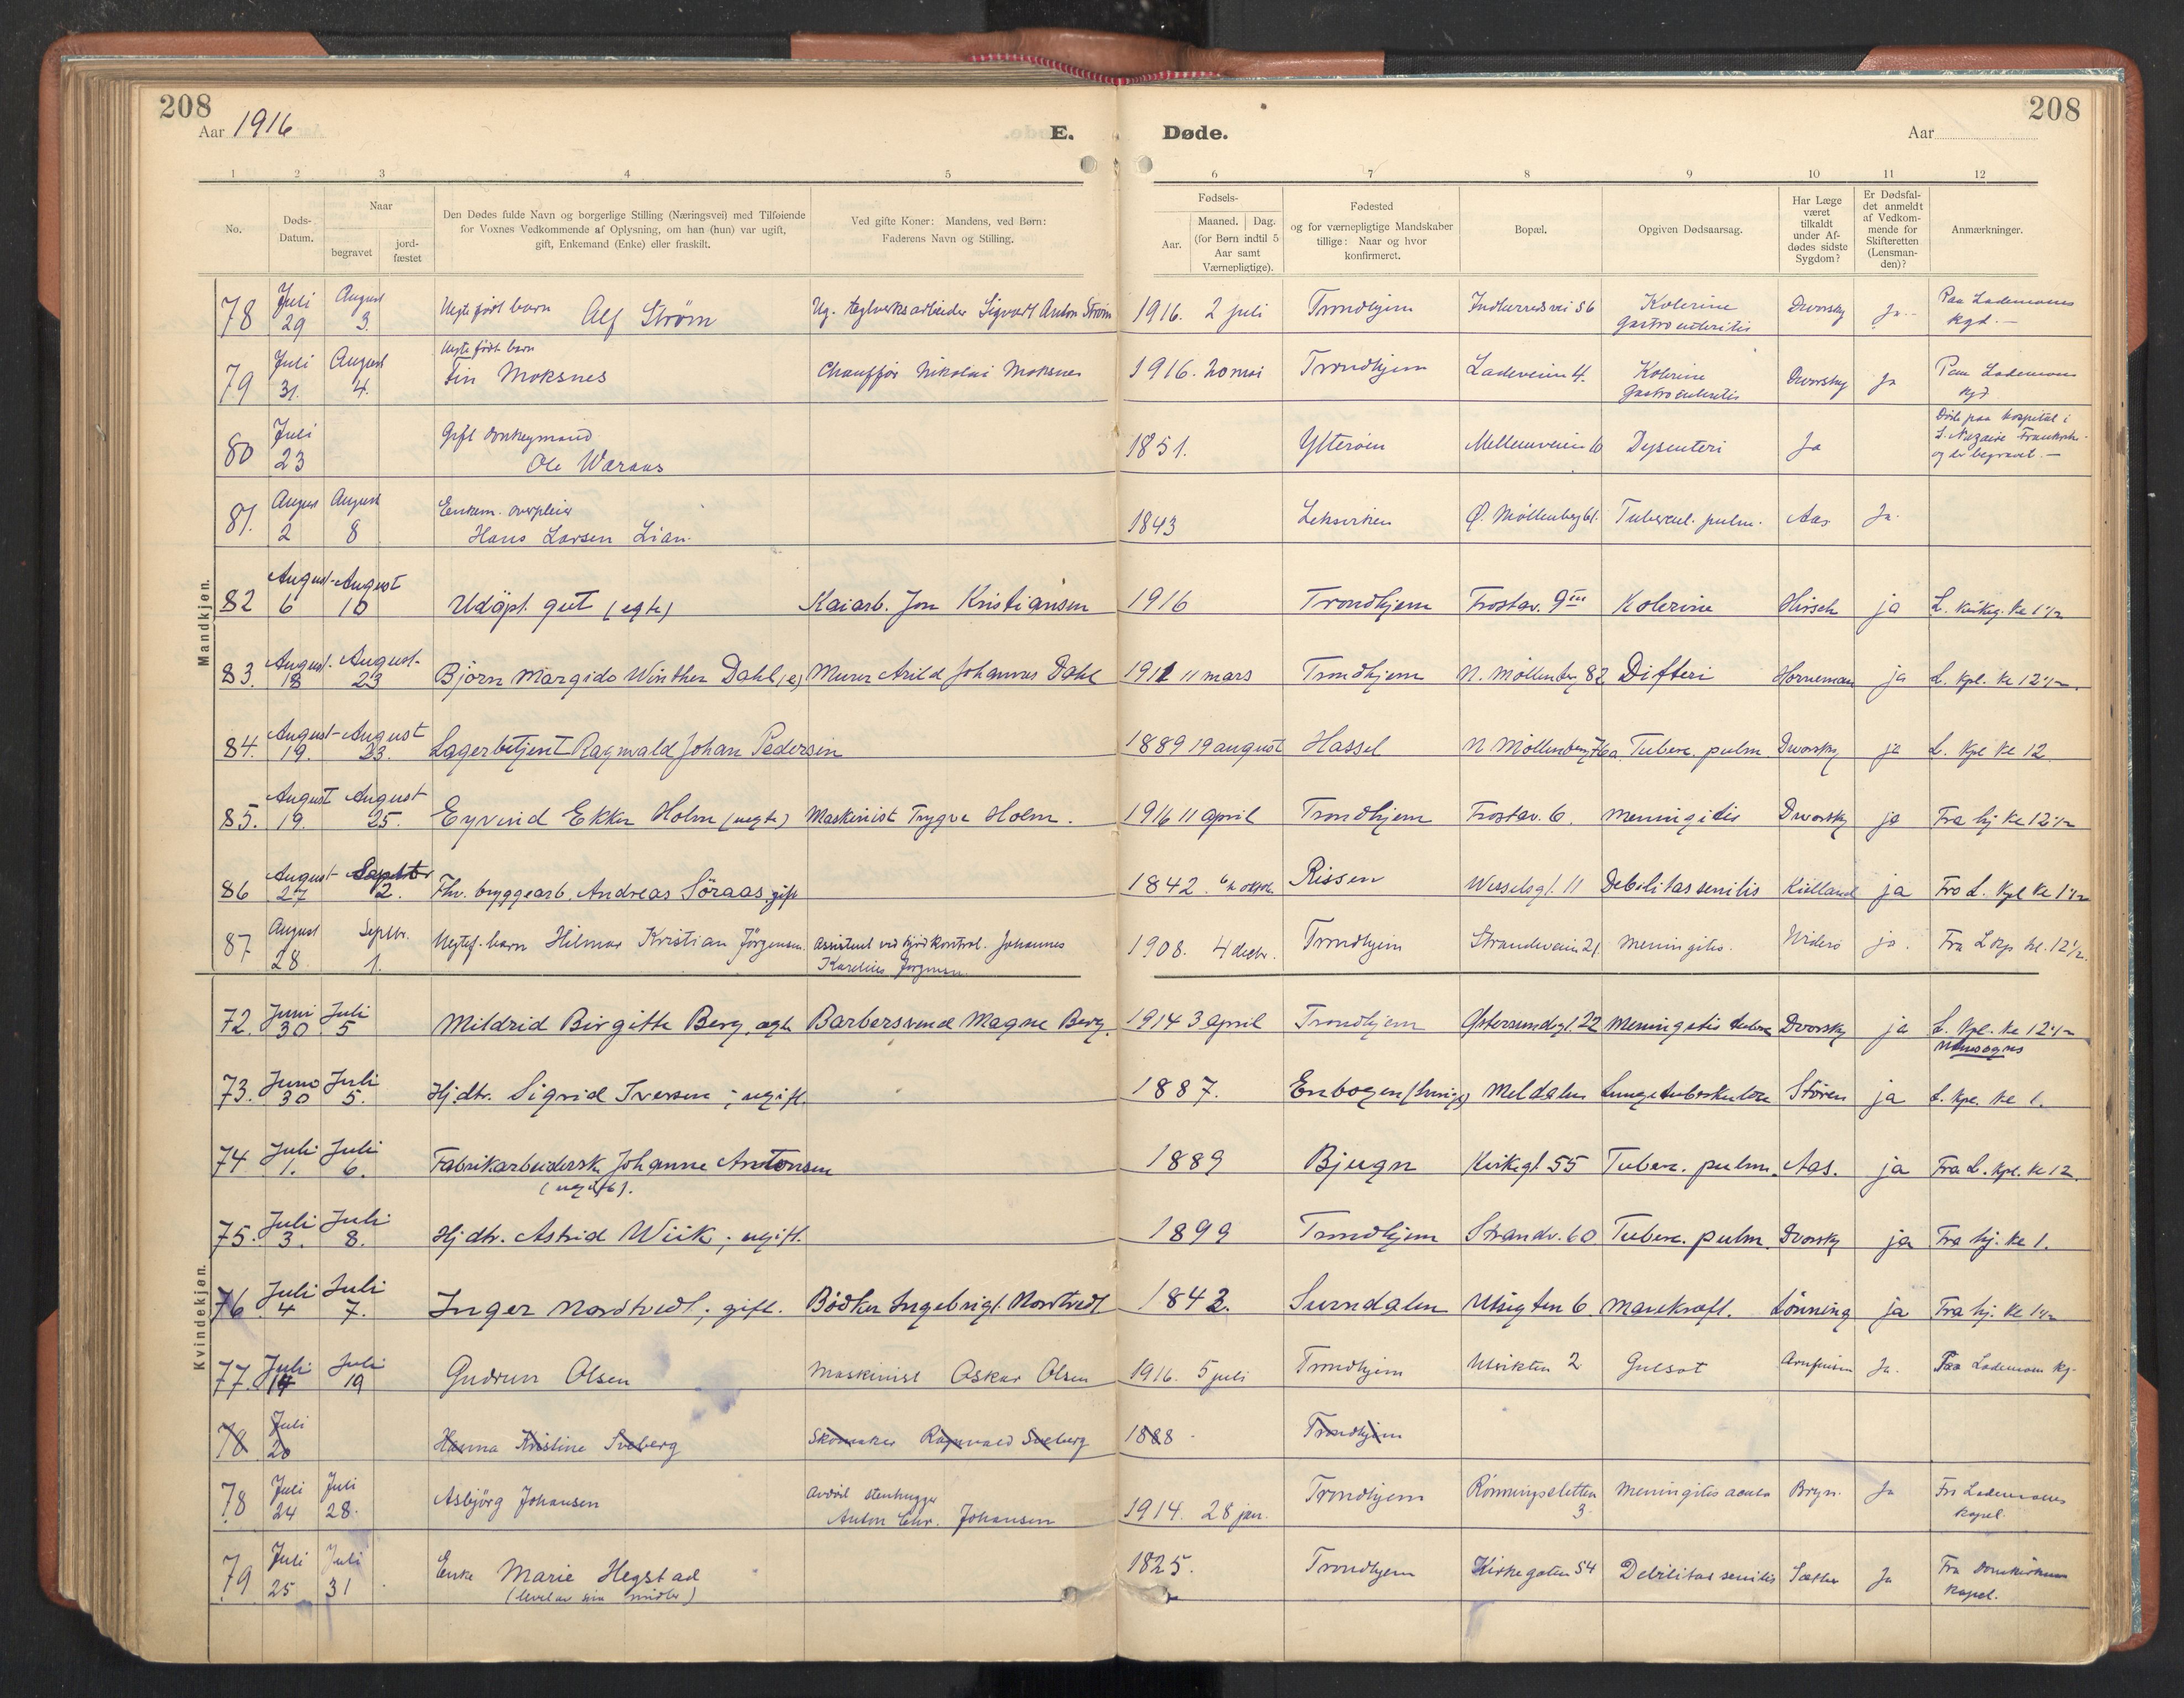 208
Aar 1916
E.
Døde.
Aar
208
1 2 3 4 5 6 7 8 9 10 11 12
No.
Døds-
Datum.
Naar
begravet
jord-
fæstet
Den Dødes fulde Navn og borgerlige Stilling (Næringsvei) med Tilføiende
for Voxnes Vedkommende af Oplysning, om han (hun) var ugift,
gift, Enkemand (Enke) eller fraskilt.
Ved gifte Koner: Mandens, ved Børn:
Faderens Navn og Stilling.
Fødsels-
Aar.
Maaned. Dag.
(for Børn indtil 5
Aar samt
Værnepligtige).
Fødested
og for værnepligtige Mandskaber
tillige: Naar og hvor
konfirmeret.
Bopæl.
Opgiven Dødsaarsag.
Har Læge
været
tilkaldt
under Af-
dødes sidste
Sygdom?
Er Dødsfal-
det anmeldt
af Vedkom-
mende for
Skifteretten
(Lensman-
den)?
Anmærkninger.
Mandkjøn.
78 Juli 29 August 3. født barn Alf Strøm Ug. teglverksarbeider Sigvart Anton Strøm 1916. 2 juli Trondhjem Indherredsvei 56 Kolerine Gastroenteritis Dvorsky Ja.- Paa Lademoens kgd.-
79 Juli 31. August 4. født barn Fin Moksnes Chauffør Nikolai Moksnes 1916. 20 mai Trondhjem Ladeveien 4. Kolerine Gastroenteritis Dworsky Ja Paa Lademoens kgd.
80 Juli 23 Gift donkeymand Ole Waraas 1851. Ytterøen Mellemveien 10 Dysenteri Ja Døde paa hospital i S. Nazaire Frankrike og er begravet.-
81. August 2 August 8 Enkem. Hans Larsen Lian. 1843 Leksviken Ø. Møllenberg 61. Tubercul. pulm. Aas Ja.
82 August 6 August 10 Udøpt gut (egte) Kaiarb. Jon Kristiansen 1916 Trondhjem Frostav. 9 III Kolerine Hirsch ja L. kirkeg. ke 1 1/2
83. August 18 August 23 Bjørn Margido Winther Dahl (e) Murer Arild Johannes Dahl 1911 11 mars Trondhjem N. Møllenberg 82 Difteri Horneman ja L. kpl. ke 12 1/2.
84. August 19. August 23. Lagerbetjent Ragnvald Johan Pedersen 1889 19 august Hassel N Møllenberg 76a. Tuberc. pulm. Dworsky ja L. kpl ke 12
85. August 19. August 25. Eyvind Ekker Holm (uegte) Maskinist Trygve Holm. 1916 11 april Trondhjem Frostav. 6. Meningitis Dworsky ja Fra hj ke 12 1/2
86 August 27 Septbr 2. Fhv. bryggearb. Andreas Söraas. gift 1842. Rissen Wesselsg. 11 Debilitas senilis Kielland ja Fra L. kpl ke 1 1/2
87 August 28. Septbr. 1. Uegtef. barn Hilmar Kristian Jörgensen. Assistent ved kjødkontrol. Johannes Karelius Jørgensen 1908. 4 decbr. Trondhjem Strandveien 21. Meningitis. Widerö ja. Fra L kap kl. 12 1/2.
Kvindekjøn.
72. Juni 30 Juli 5 Mildrid Birgitte Berg, egte Barbersvend Magne Berg. 1914 3 april Trondhjem Østersundsg. 22 Meningitis tuberc Dvorsky ja L. kpl. ke 12 1/2
73. Juni 30 Juli 5. Hj.dtr. Sigrid Iversen; ugift. 1887. Enbogen (Sverige) Meldalen Lungetuberkulose Støren ja L. kpl. ke 1.
74 Juli 1. Juli 6. Fabrikarbeiderske Johanne Antonsen (ugift). 1889 Bjugn Kirkegt. 55 Tuberc. pulm. Aas. ja Fra L. kpl. ke 12.
75. Juli 3. Juli 8. Hj.dtr. Astrid Wiik; ugift. 1899 Trondhjem Strandv. 60 Tuberc. pulm. Dvorsky ja Fra hj. ke 1.
76 Juli 4 Juli 7. Inger Nordtvedt; gift. Bødker Ingebrigt Nordtvedt 1842. Surndalen Utsigten 6. Mavekræft. Lönning ja Fra hj. ke 1 1/2
77. Juli 14 Juli 19 Gudrun Olsen Maskinist Oskar Olsen 1916. 5 juli Trondhjem Utsikten 2 Gulsot Arnfinsen Ja. Paa Lademoen kg.
78 Juli 20 Hanna Kristine Sveberg Skomaker Ragnvald Sveberg 1888 Trondhjem
78 Juli 24 Juli 28. Asbjörg Johansen Avdød stenhugger Anton Chr. Johansen 1914. 28 jan. Trondhjem Rønningsletten 3. Meningitis acuta Bryn. Ja Fra Lademoens kapel.
79 Juli 25 Juli 31 Enke Marie Hegstad (levet av sine midler) 1825. Trondhjem Kirkegaten 54 Debilitas senilis Sæther Ja Fra Domkirkens kapel.